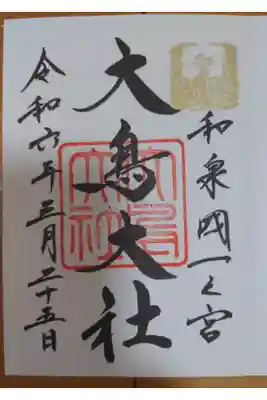 和泉國一之宮
大鳥大社
大鳥
大社
令和六年三月二十五日